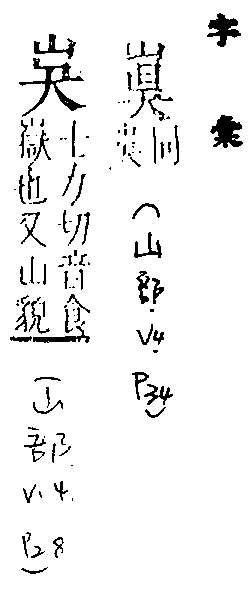 字彙
同
(山部.
V4.
P34)
士力切音食
嶽也又山貌
(山部.
V.4.
P28)